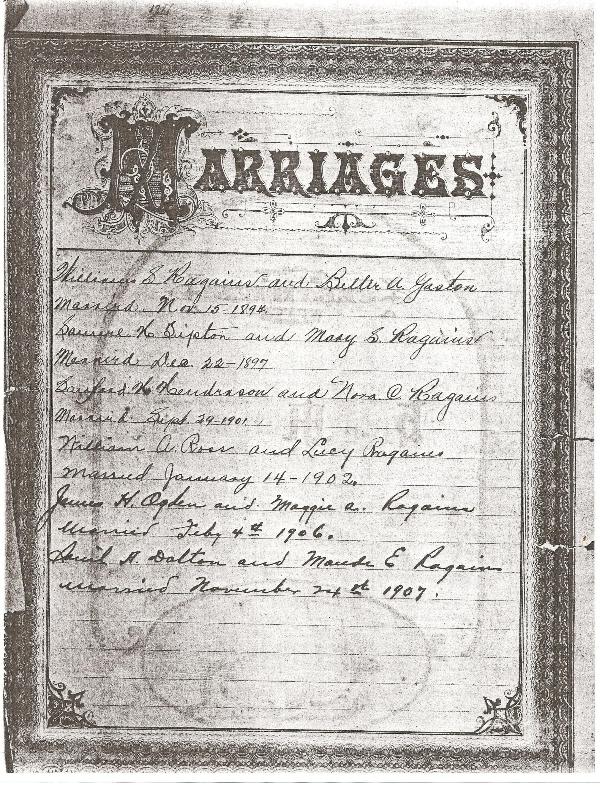 MARRIAGES
William S Ragains and Biller A Gaston
Married Nov. 15 1894
H Sipton and Mary S. Ragains
Married Dec 22-1897
Sanford H Hendrason and Nora O. Ragains
Married Sept. 29-1901
William A. Ross and Lucy Ragains
Married January 14-1902.
James H. Ogden and Maggie A. Ragains
Married Feby 4th 1906.
A. Dalton and Maude E Ragains
Married November 24th 1907.